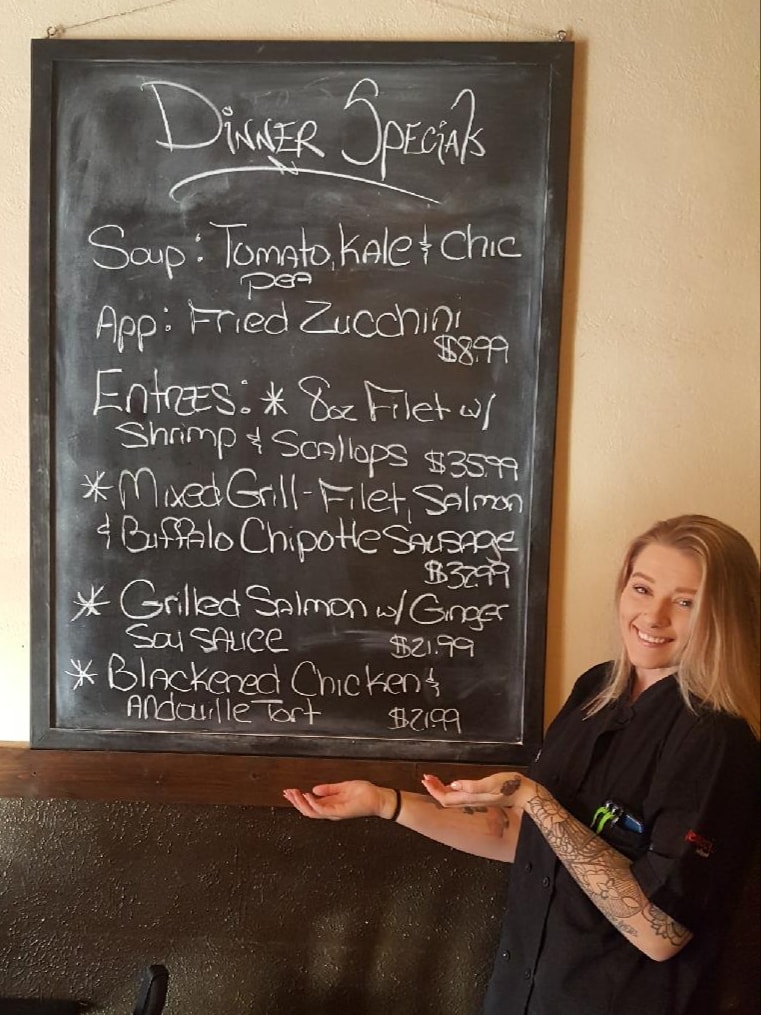 Dinner Specials
Soup: Tomato, Kale & Chic
pea
App: Fried Zucchini
$8.99
Entrees: * 8oz Filet w/
Shrimp & Scallops $35.99
* Mixed Grill - Filet, Salmon
& Buffalo Chipotle Sausage
$32.99
* Grilled Salmon w/ Ginger
Soy Sauce $21.99
* Blackened Chicken &
Andouille Tart $21.99